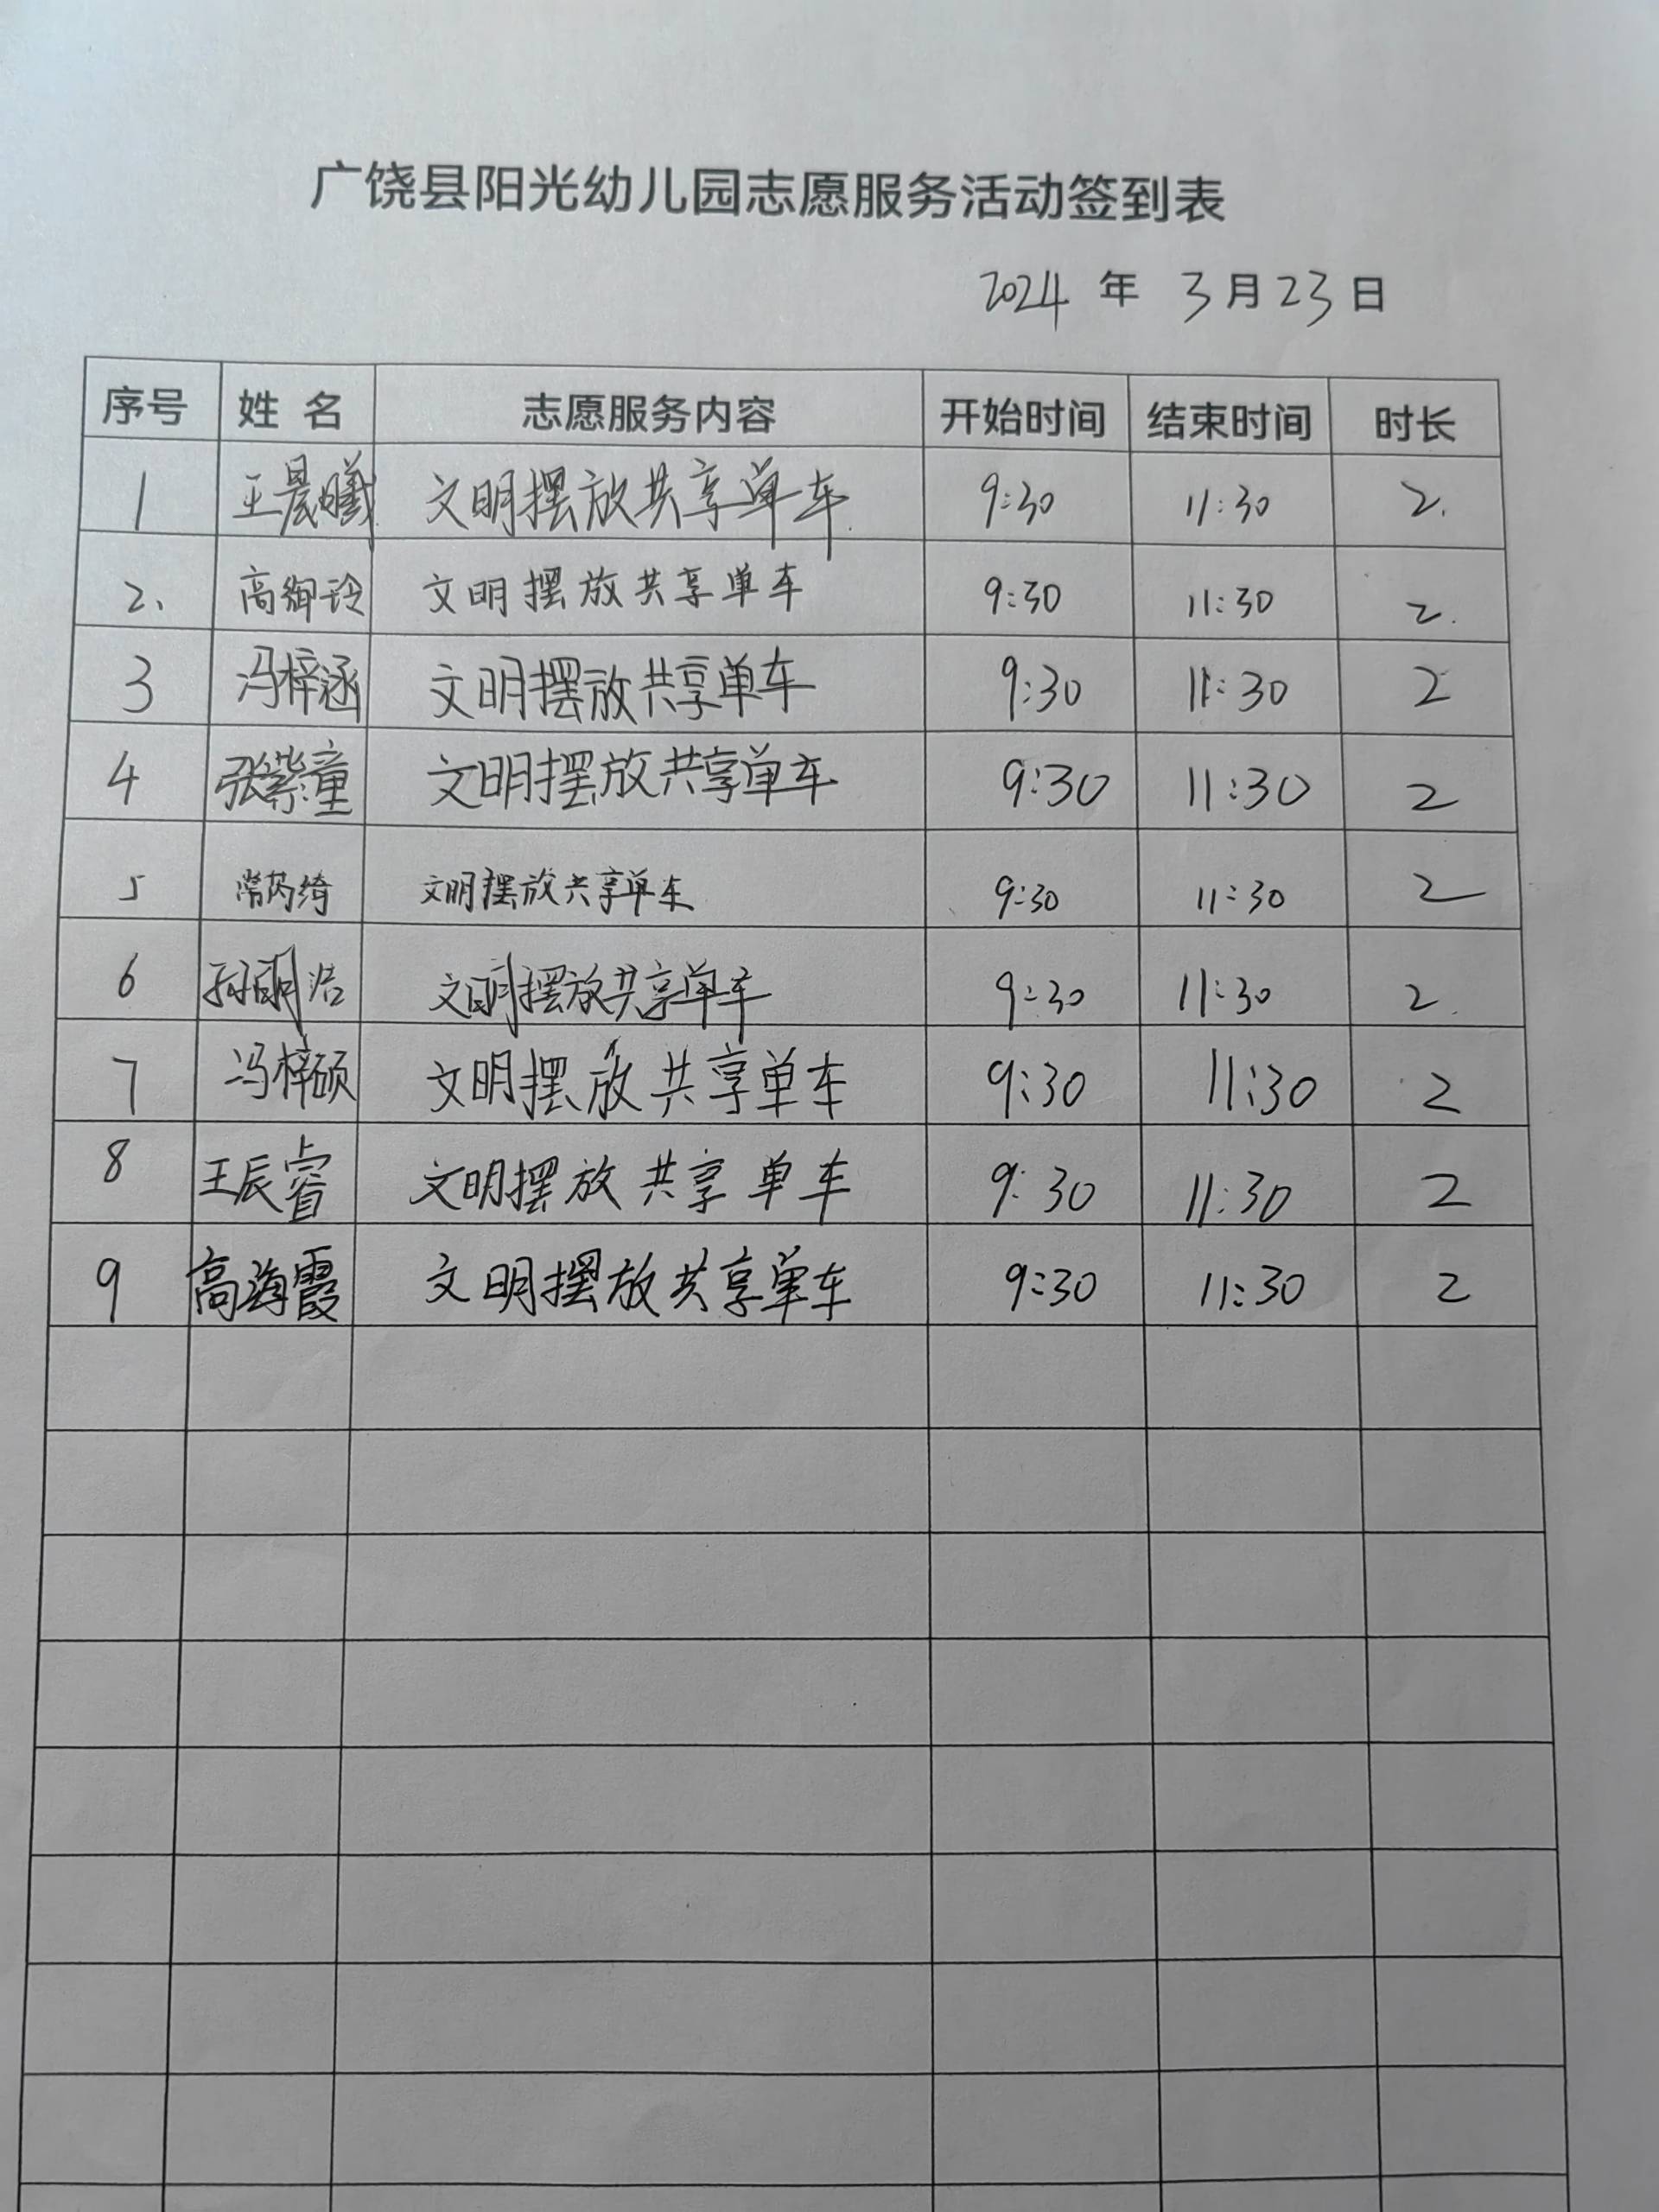 广饶县阳光幼儿园志愿服务活动签到表
2024 年 3 月 23 日
序号 姓 名 志愿服务内容 开始时间 结束时间 时长
1 王晨曦 文明摆放共享单车 9:30 11:30 2.
2、 高御玲 文明摆放共享单车 9:30 11:30 2.
3 冯梓涵 文明摆放共享单车 9:30 11:30 2
4 张紫童 文明摆放共享单车 9:30 11:30 2
5 常芮绮 文明摆放共享单车 9:30 11:30 2
6 孙明浩 文明摆放共享单车 9:30 11:30 2.
7 冯梓硕 文明摆放共享单车 9:30 11:30 2
8 王辰睿 文明摆放共享单车 9:30 11:30 2
9 高海霞 文明摆放共享单车 9:30 11:30 2